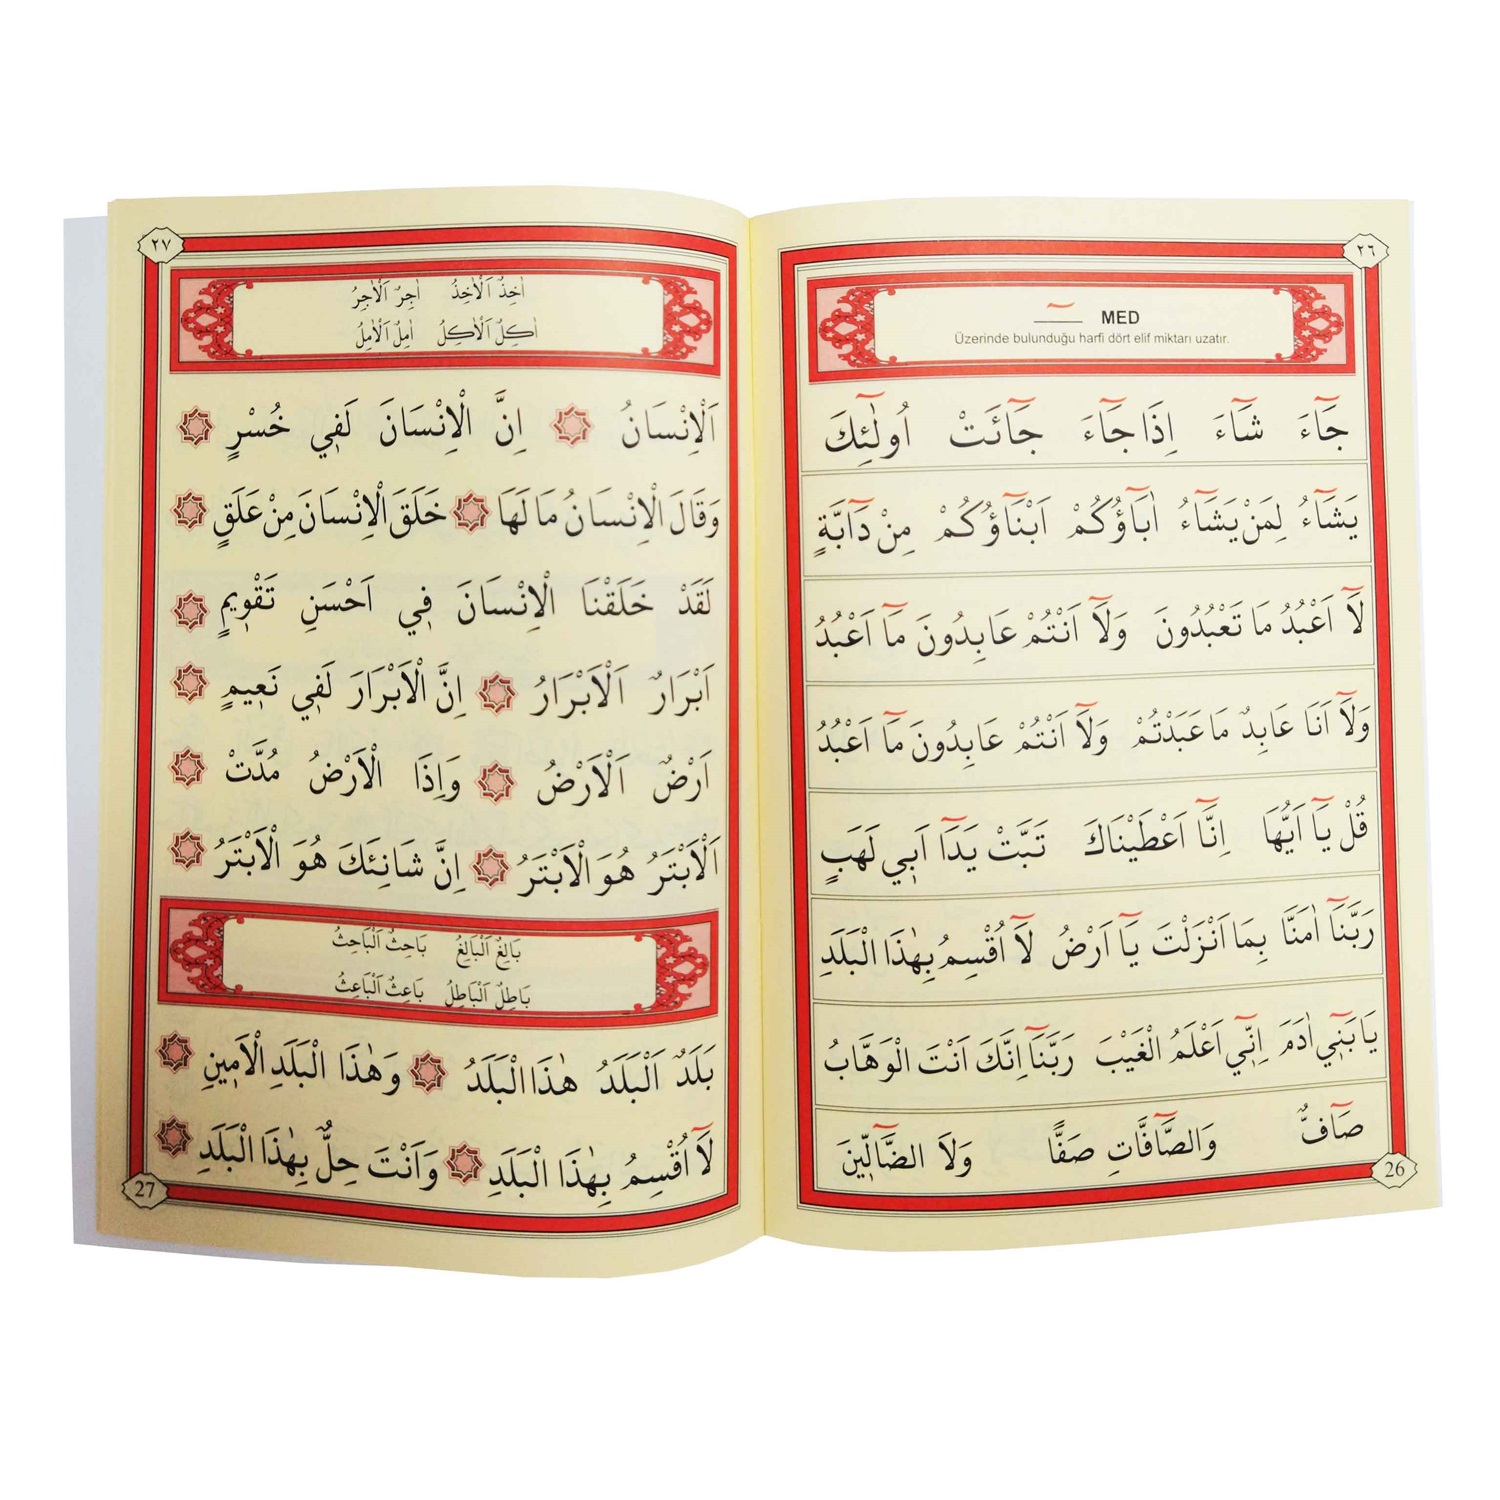 ٢٦
MED ـٓـ
Üzerinde bulunduğu harfi dört elif miktarı uzatır.
جَٓاءَ شَٓاءَ اِذَا جَٓاءَ جَٓائَتْ اُولٰٓئِكَ
يَشَٓاءُ لِمَنْ يَشَٓاءُ اٰبَٓاؤُكُمْ اَبْنَٓاؤُكُمْ مِنْ دَٓابَّةٍ
لَٓا اَعْبُدُ مَا تَعْبُدُونَ وَلَٓا اَنْتُمْ عَابِدُونَ مَٓا اَعْبُدُ
وَلَٓا اَنَا عَابِدٌ مَا عَبَدْتُمْ وَلَٓا اَنْتُمْ عَابِدُونَ مَٓا اَعْبُدُ
قُلْ يَٓا اَيُّهَا اِنَّٓا اَعْطَيْنَاكَ تَبَّتْ يَدَٓا اَبِي لَهَبٍ
رَبَّنَٓا اٰمَنَّا بِمَٓا اَنْزَلْتَ يَٓا اَرْضُ لَٓا اُقْسِمُ بِهٰذَا الْبَلَدِ
يَا بَنِٓي اٰدَمَ اِنِّٓي اَعْلَمُ الْغَيْبَ رَبَّنَٓا اِنَّكَ اَنْتَ الْوَهَّابُ
صَٓافٌّ وَالصَّٓافَّاتِ صَفًّا وَلَا الضَّٓالِّينَ
26
٢٧
اٰخِذٌ اَلْاٰخِذُ اٰجِرٌ اَلْاٰجِرُ
اٰكِلٌ اَلْاٰكِلُ اٰمِلٌ اَلْاٰمِلُ
اَلْاِنْسَانُ ۞ اِنَّ الْاِنْسَانَ لَفِي خُسْرٍ ۞
وَقَالَ الْاِنْسَانُ مَا لَهَا ۞ خَلَقَ الْاِنْسَانَ مِنْ عَلَقٍ ۞
لَقَدْ خَلَقْنَا الْاِنْسَانَ فِي اَحْسَنِ تَقْوِيمٍ ۞
اَبْرَارٌ اَلْاَبْرَارُ ۞ اِنَّ الْاَبْرَارَ لَفِي نَعِيمٍ ۞
اَرْضٌ اَلْاَرْضُ ۞ وَاِذَا الْاَرْضُ مُدَّتْ ۞
اَلْاَبْتَرُ هُوَ الْاَبْتَرُ ۞ اِنَّ شَانِئَكَ هُوَ الْاَبْتَرُ ۞
بَالِغٌ اَلْبَالِغُ بَاحِثٌ اَلْبَاحِثُ
بَاطِلٌ اَلْبَاطِلُ بَاعِثٌ اَلْبَاعِثُ
بَلَدٌ اَلْبَلَدُ هٰذَا الْبَلَدُ ۞ وَهٰذَا الْبَلَدِ الْاَمِينِ ۞
لَٓا اُقْسِمُ بِهٰذَا الْبَلَدِ ۞ وَاَنْتَ حِلٌّ بِهٰذَا الْبَلَدِ ۞
27